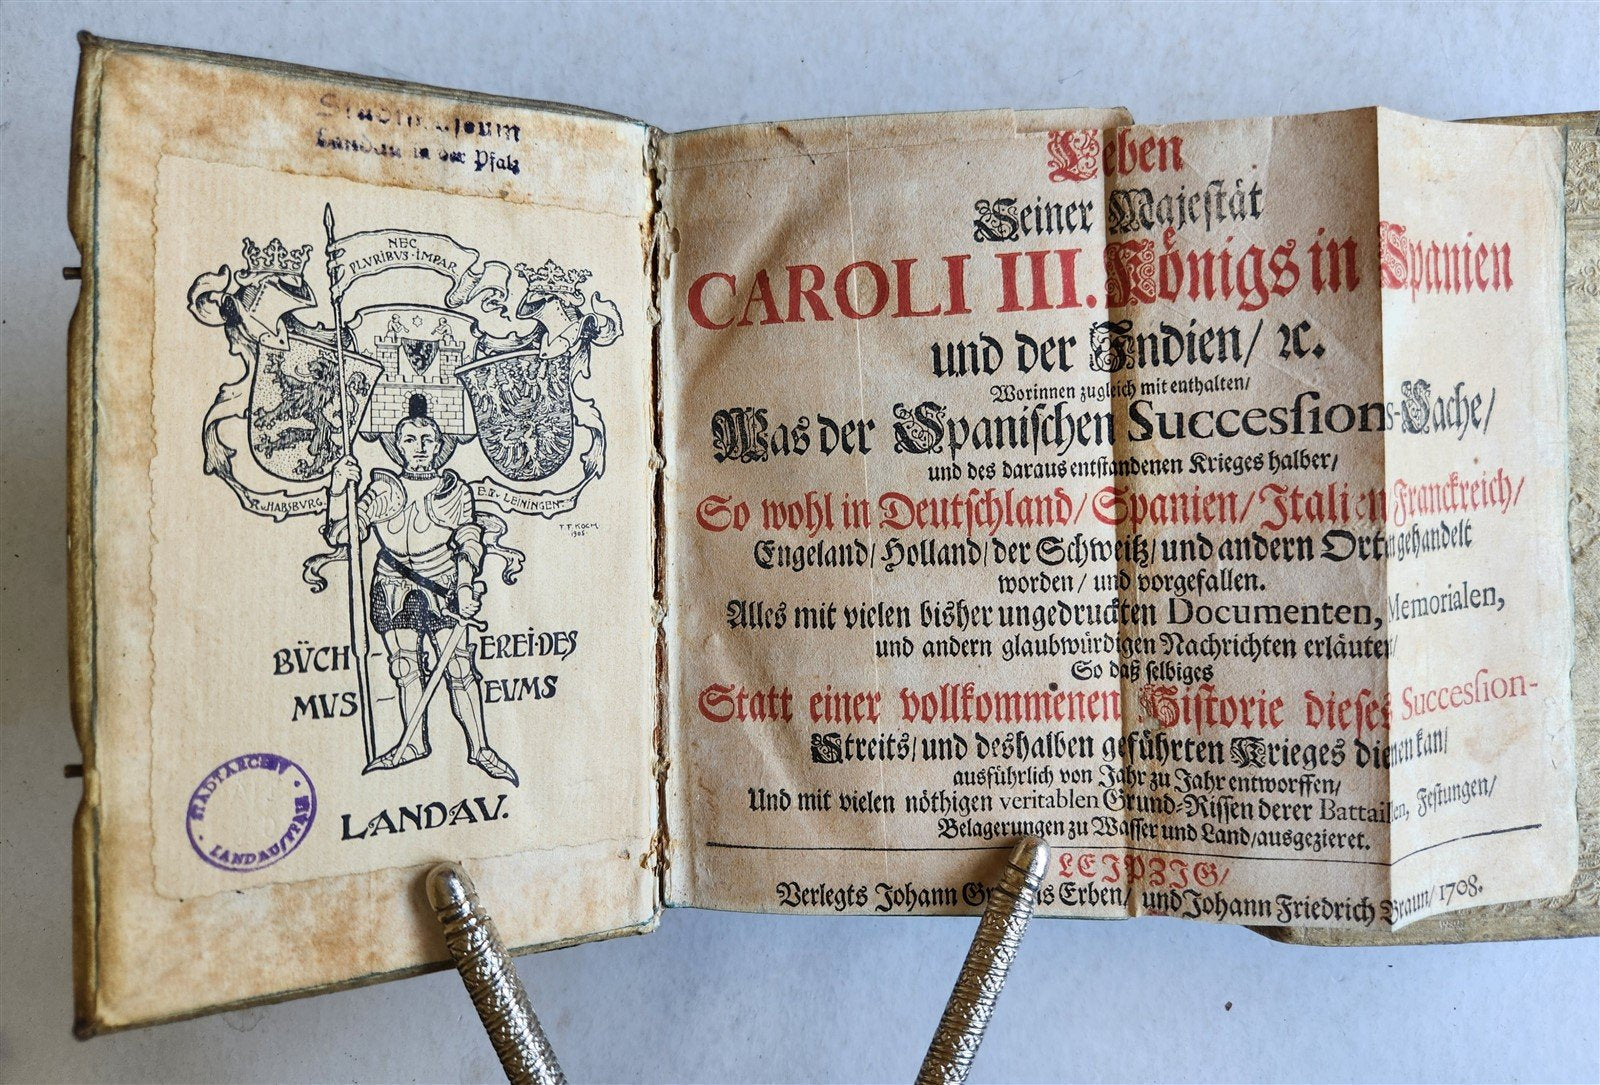 Stadtmuseum
Landau in der Pfalz
NEC
PLVRIBVS·IMPAR
R.v.HABSBVRG.
E.v.LEININGEN
F.F.KOCH.
1905
BÜCH-EREI·DES
MVS-EVMS
LANDAV.
STADTARCHIV
LANDAU/PFALZ
Leben
Seiner Majeſtät
CAROLI III. Koͤnigs in Spanien
und der Indien/ ꝛc.
Worinnen zugleich mit enthalten/
Was der Spaniſchen Succeſſions-Sache/
und des daraus entſtandenen Krieges halber/
So wohl in Deutſchland/ Spanien/ Italien Franckreich/
Engeland/ Holland/ der Schweitz/ und andern Orten gehandelt
worden/ und vorgefallen.
Alles mit vielen bisher ungedruckten Documenten, Memorialen,
und andern glaubwürdigen Nachrichten erläutert/
So daß ſelbiges
Statt einer vollkommenen Hiſtorie dieſes Succeſſion-
Streits/ und deshalben geführten Krieges dienen kan/
ausführlich von Jahr zu Jahr entworffen/
Und mit vielen nöthigen veritablen Grund-Riſſen derer Battaillen, Feſtungen/
Belagerungen zu Waſſer und Land/ ausgezieret.
LEIPZIG/
Verlegts Johann Erben/ und Johann Friedrich Braun/ 1708.